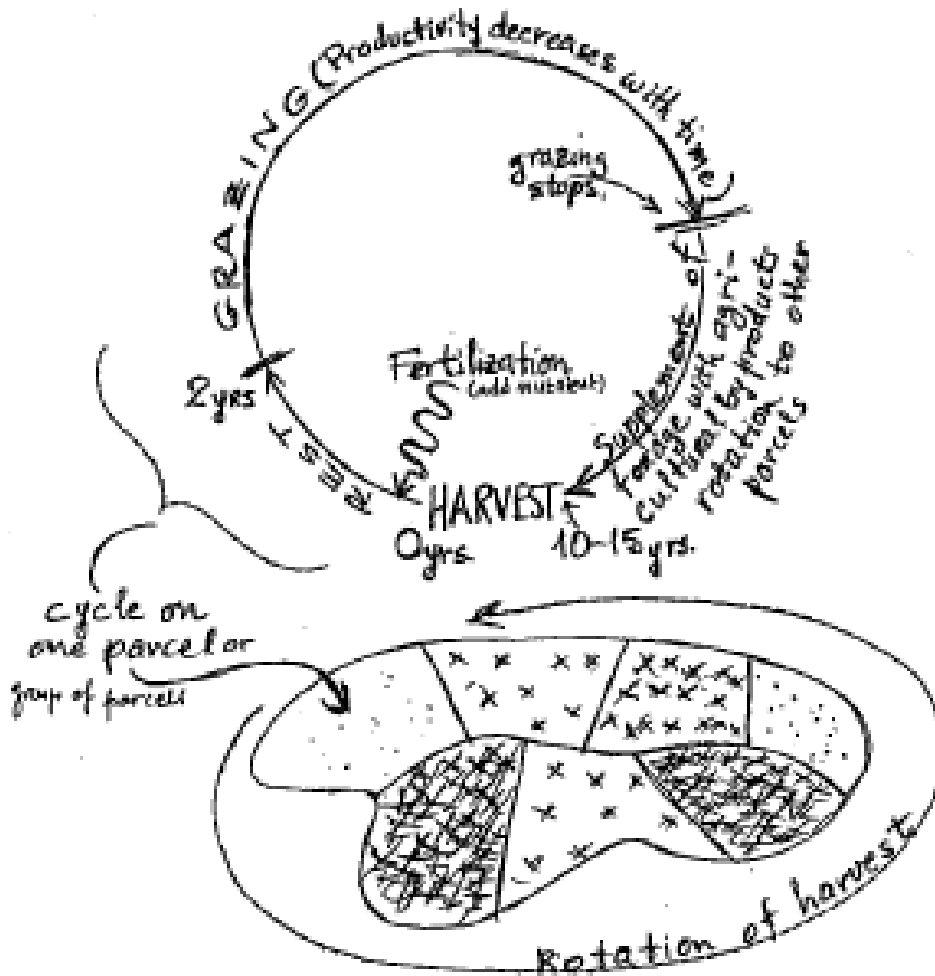 GRAZING (Productivity decreases with time)
grazing
stops.
Supplement of
forage with agri-
cultural by products
rotation to other
parcels
Fertilization
(add nutrient)
2 yrs
REST
HARVEST
0 yrs
10-15 yrs.
cycle on
one parcel or
group of parcels
Rotation of harvest